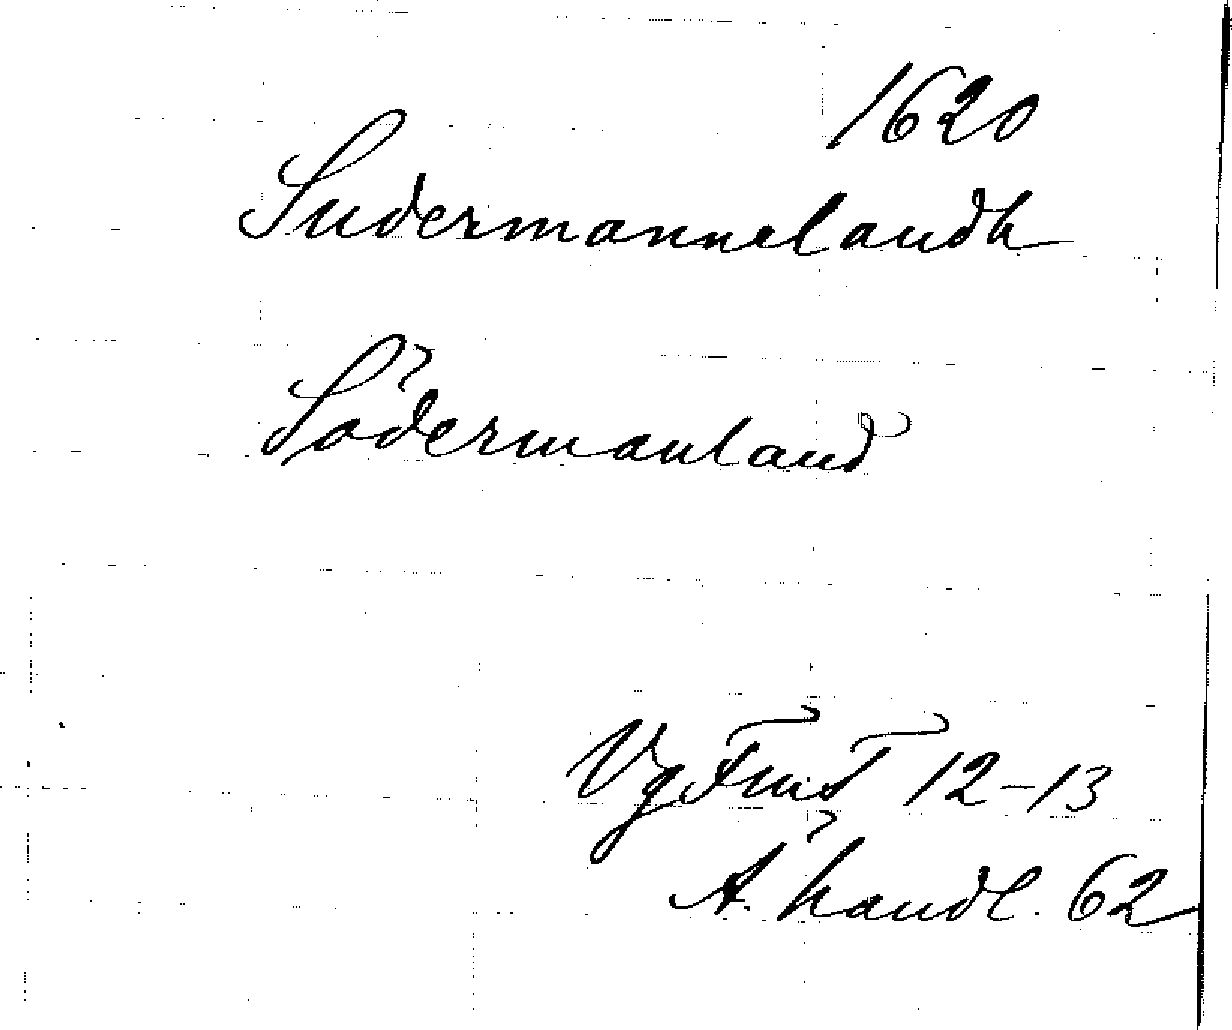 1620
Sudermannelandh
Södermanland
Vg FmT 12-13
A. handl. 62